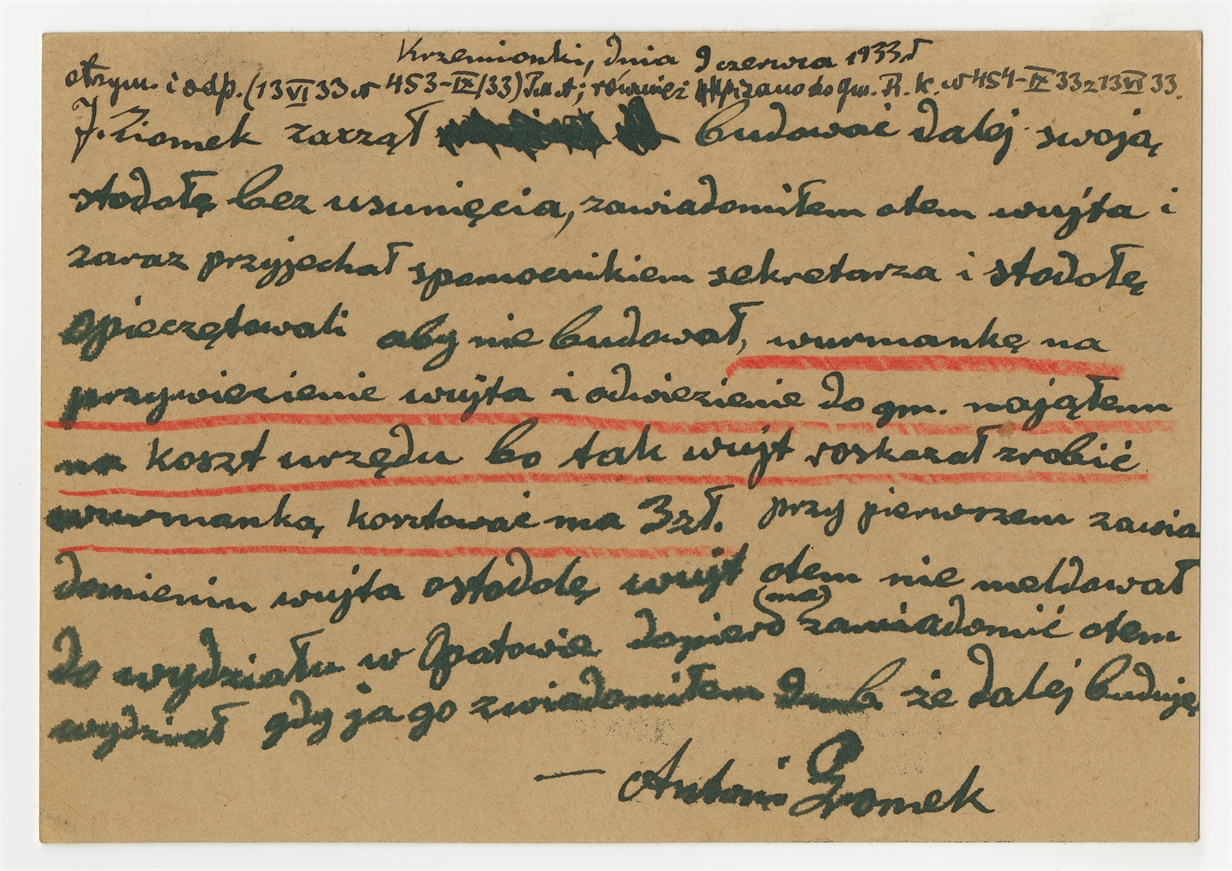 Krzemionki, dnia 9 czerwca 1933 r
otrzym. i odp. (13 VI 33 w 453-IX/33) również pisano do gm. R. K. w 454-IX 33 z 13 VI 33.
J. Ziomek zarzął budować dalej swoją
stodołę bez usunięcia, zawiadomiłem otem wujta i
zaraz przyjechał spomocnikiem sekretarza i stodołę
opieczętowali aby nie budował, wurmankę na
przywiezienie wujta i odwiezienie do gm. najęłem
na koszt urzędu bo tak wujt roskazał zrobić
wurmanką kosztować ma 3 zł. przy pierwszem zawia
domieniu wujta ostodołę wujt otem nie meldował
do wydziału w Opatowie dopiero (ma) zawiadomić otem
wydział gdy ja go zwiadomiłem 9 b. że dalej buduję
— Antoni Ziomek